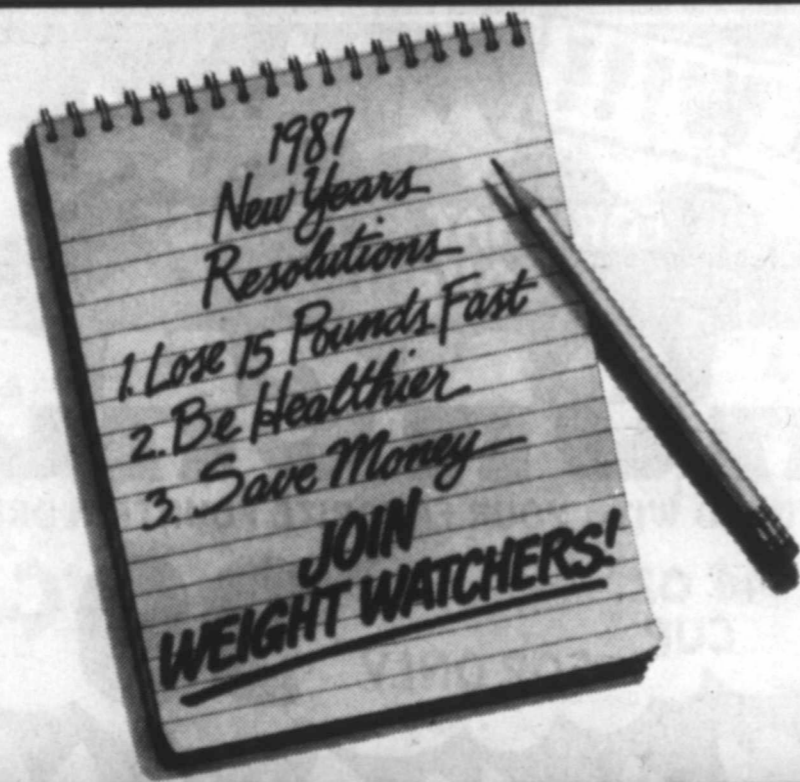 1987
New Years
Resolutions
1. Lose 15 Pounds Fast
2. Be Healthier
3. Save Money
JOIN
WEIGHT WATCHERS!